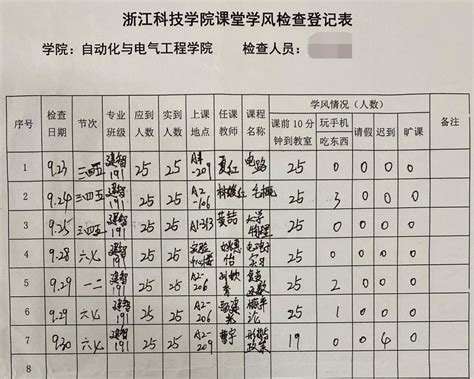 浙江科技学院课堂学风检查登记表
学院：自动化与电气工程学院 检查人员：
序号 检查日期 节次 专业班级 应到人数 实到人数 上课地点 任课教师 课程名称 学风情况（人数） 备注
课前10分钟到教室 玩手机吃东西 请假 迟到 旷课
1 9.23 三四五 建智191 25 25 A4-209 夏红 电路 25 0 0 0 0
2 9.24 三四五 建智191 25 25 A2-106 毛概 25 3 0 0 0
3 9.25 三四五 建智191 25 25 A1-313 黄喆 大学物理 25 0 0 0 0
4 9.28 六七 建智191 25 25 实习 25 0 0 0 0
5 9.29 一二 建智191 25 25 A2-206 复变函数 25 2 0 0 0
6 9.29 六七 建智191 25 25 A2-206 概率论 25 1 0 0 0
7 9.30 六七 建智191 25 25 A2-209 曹宇 形势政策 19 0 0 4 0
8